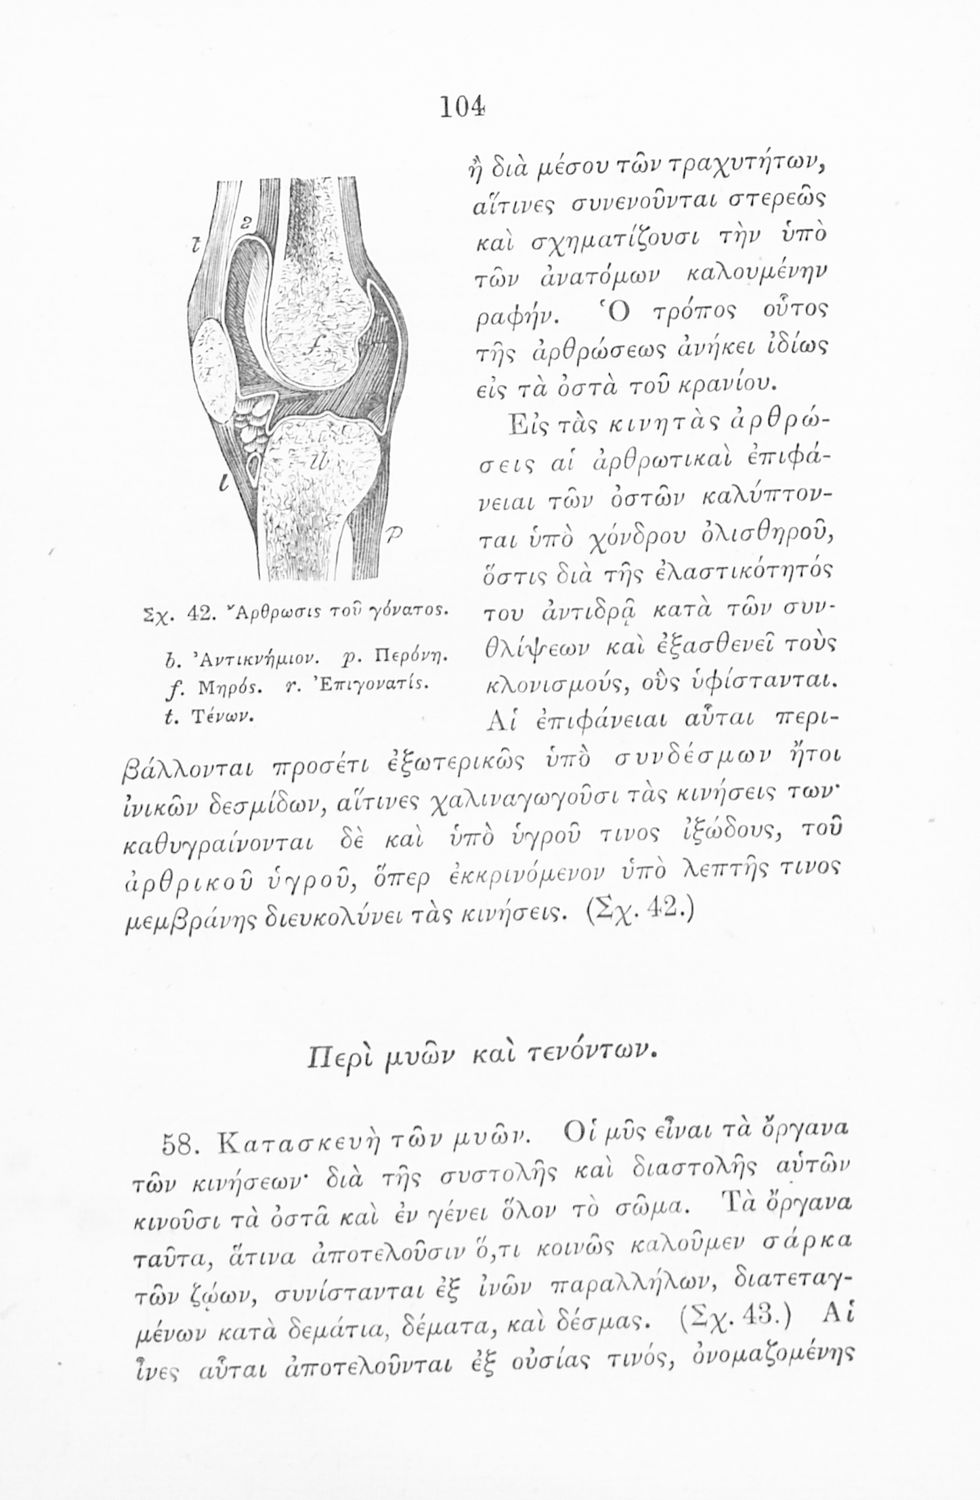 104
ἢ διὰ μέσου τῶν τραχυτήτων,
αἵτινες συνενοῦνται στερεῶς
καὶ σχηματίζουσι τὴν ὑπὸ
τῶν ἀνατόμων καλουμένην
ραφήν. Ὁ τρόπος οὗτος
τῆς ἀρθρώσεως ἀνήκει ἰδίως
εἰς τὰ ὀστᾶ τοῦ κρανίου.
Εἰς τὰς κινητὰς ἀρθρώ-
σεις αἱ ἀρθρωτικαὶ ἐπιφά-
νειαι τῶν ὀστῶν καλύπτον-
ται ὑπὸ χόνδρου ὀλισθηροῦ,
ὅστις διὰ τῆς ἐλαστικότητός
του ἀντιδρᾷ κατὰ τῶν συν-
θλίψεων καὶ ἐξασθενεῖ τοὺς
κλονισμούς, οὓς ὑφίστανται.
Αἱ ἐπιφάνειαι αὗται περι-
t
2
f
r
tb
t
p
Σχ. 42. Ἄρθρωσις τοῦ γόνατος.
b. Ἀντικνήμιον. p. Περόνη.
f. Μηρός. r. Ἐπιγονατίς.
t. Τένων.
βάλλονται προσέτι ἐξωτερικῶς ὑπὸ συνδέσμων ἤτοι
ἰνικῶν δεσμίδων, αἵτινες χαλιναγωγοῦσι τὰς κινήσεις των·
καθυγραίνονται δὲ καὶ ὑπὸ ὑγροῦ τινος ἰξώδους, τοῦ
ἀρθρικοῦ ὑγροῦ, ὅπερ ἐκκρινόμενον ὑπὸ λεπτῆς τινος
μεμβράνης διευκολύνει τὰς κινήσεις. (Σχ. 42.)
Περὶ μυῶν καὶ τενόντων.
58. Κατασκευὴ τῶν μυῶν. Οἱ μῦς εἶναι τὰ ὄργανα
τῶν κινήσεων· διὰ τῆς συστολῆς καὶ διαστολῆς αὑτῶν
κινοῦσι τὰ ὀστᾶ καὶ ἐν γένει ὅλον τὸ σῶμα. Τὰ ὄργανα
ταῦτα, ἅτινα ἀποτελοῦσιν ὅ,τι κοινῶς καλοῦμεν σάρκα
τῶν ζῴων, συνίστανται ἐξ ἰνῶν παραλλήλων, διατεταγ-
μένων κατὰ δεμάτια, δέματα, καὶ δέσμας. (Σχ. 43.) Αἱ
ἶνες αὗται ἀποτελοῦνται ἐξ οὐσίας τινός, ὀνομαζομένης